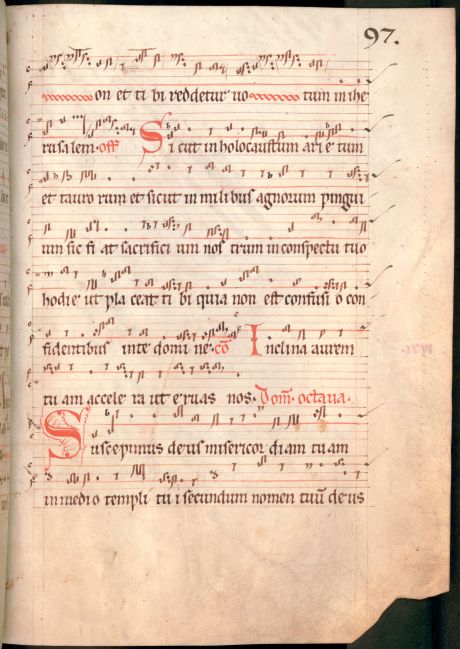 97.
on et ti bi reddetur uo tum in ihe
rusalem· off Si cut in holocaustum ari e tum
et tauro rum et sicut in mili bus agnorum pingui
um sic fi at sacrifici um nos trum in conspectu tuo
hodie ut pla ceat ti bi quia non est confusi o con
fidentibus in te domi ne· cō Inclina aurem
tu am accele ra ut e ruas nos· Dom̄ octaua·
Suscepimus deus misericor diam tu am
in medi o templi tu i secundum nomen tuū deus